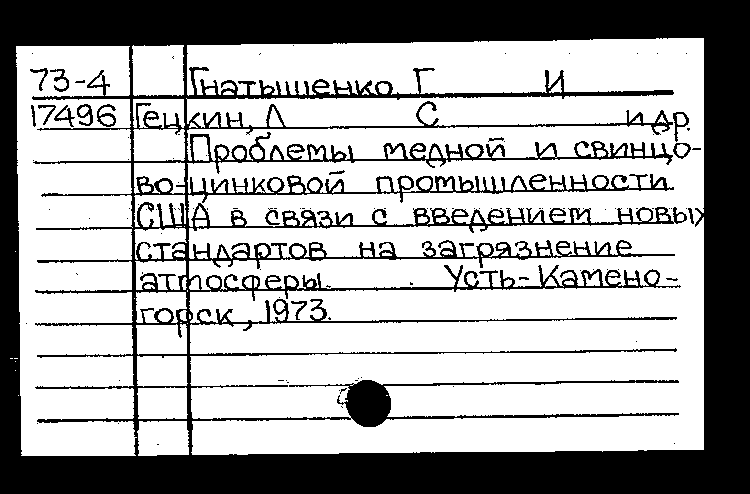 73-4 Гнатышенко, Г И
17496 Гецкин, Л С и др.
Проблемы медной и свинцо-
во-цинковой промышленности
США в связи с введением новых
стандартов на загрязнение
атмосферы. Усть-Камено-
горск, 1973.